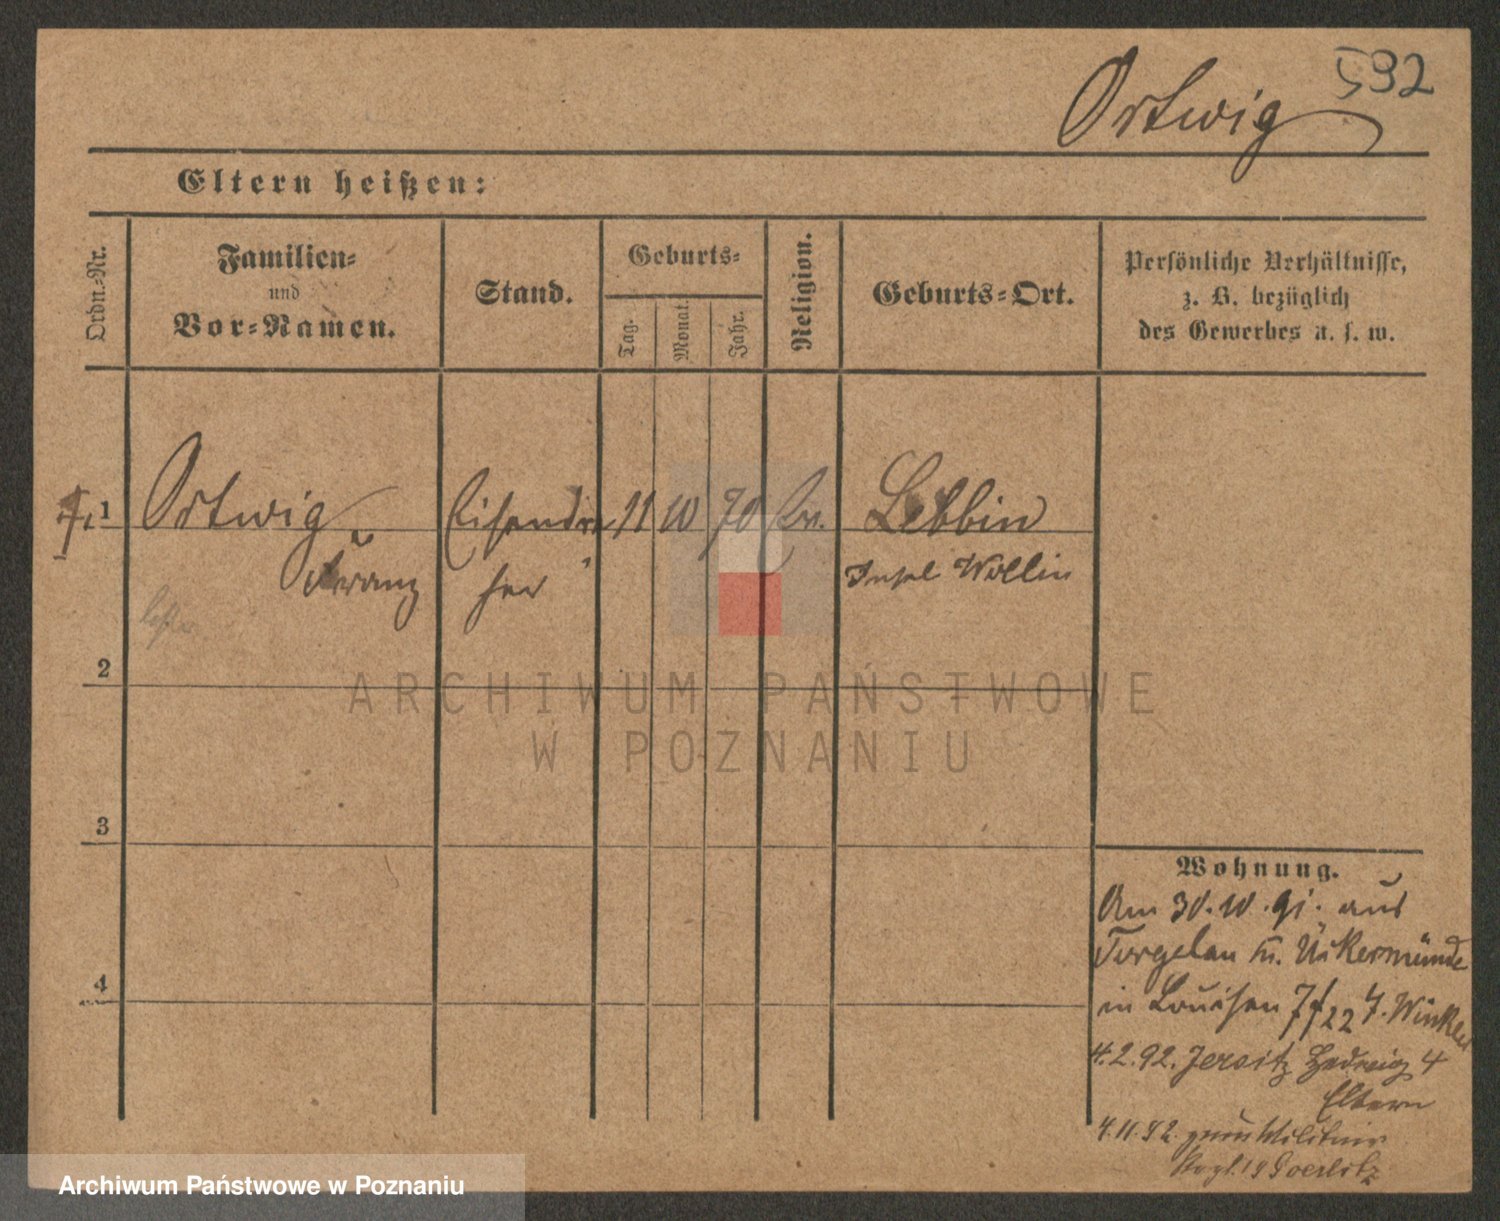 592
Ortwig
Eltern heißen:
Ordn.-Nr.
Familien-
und
Vor-Namen.
Stand.
Geburts-
Tag.
Monat.
Jahr.
Religion.
Geburts-Ort.
Persönliche Verhältnisse,
z. B. bezüglich
des Gewerbes u. s. w.
1 Ortwig Eisendre 11 10 70 Ev. Lebbin
Franz her Insel Wollin
2
3
4
Wohnung.
Am 30.10.91. aus
Torgelau Kr. Ückermünde
in Louisen 7/22 F. Winkler
4.2.92. Jersitz Hedwig 4
Eltern
4.11.92. zum Militair
19 Goerlitz
ARCHIWUM PAŃSTWOWE
W POZNANIU
Archiwum Państwowe w Poznaniu